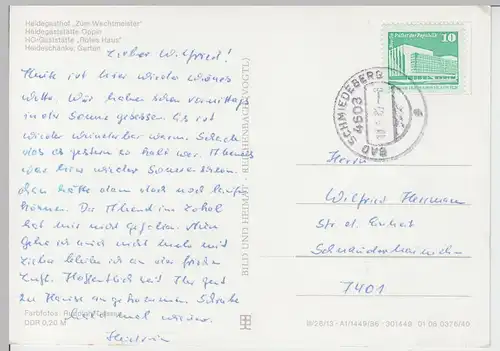 Heidegasthof „Zum Wachtmeister"
Heidegaststätte Göpin
HO-Gaststätte „Rotes Haus"
Heideschänke, Garten
Lieber Wilfried!
Heute ist hier wieder schönes
Wetter. Wir haben schon vormittags
in der Sonne gesessen. Es ist
wieder wunderbar warm. Schade
das es gestern so kalt war. Abends
war hier wieder Sonnenschein.
Man hätte dann doch noch laufen
können. Der Abend im Lokal
hat mir nicht gefallen. Nun
gehe ich auch nicht mehr mit
Lieber bleibe ich an der frischen
Luft. Hoffentlich seit Ihr gut
zu Hause angekommen. Schreibe
bald mal wieder.
Heidrun
Farbfotos:
DDR 0,20 M
BILD UND HEIMAT · REICHENBACH (VOGTL)
Palast der Republik
10
BAD SCHMIEDEBERG
4603
Herrn
Wilfried Herrmann
Str. d. Einheit
7401
III/26/13 · A1/1449/86 · 301449 01 08 0376/40